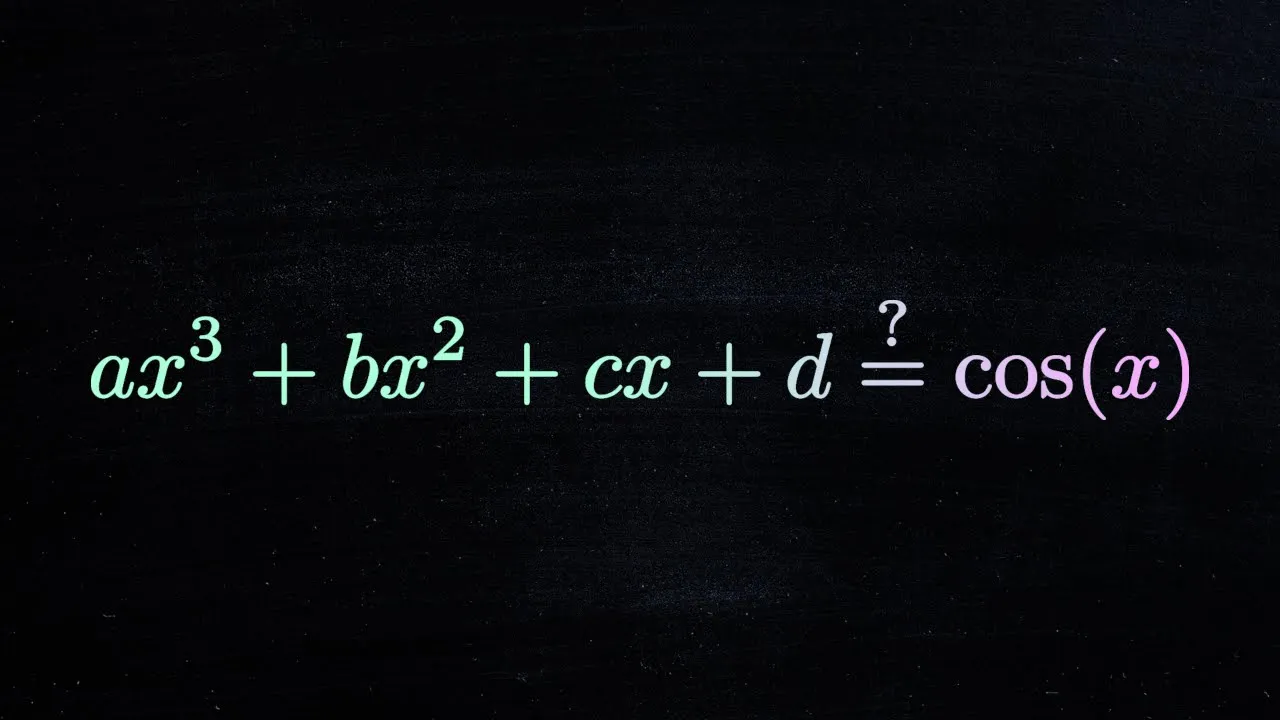 ax³ + bx² + cx + d ≟ cos(x)